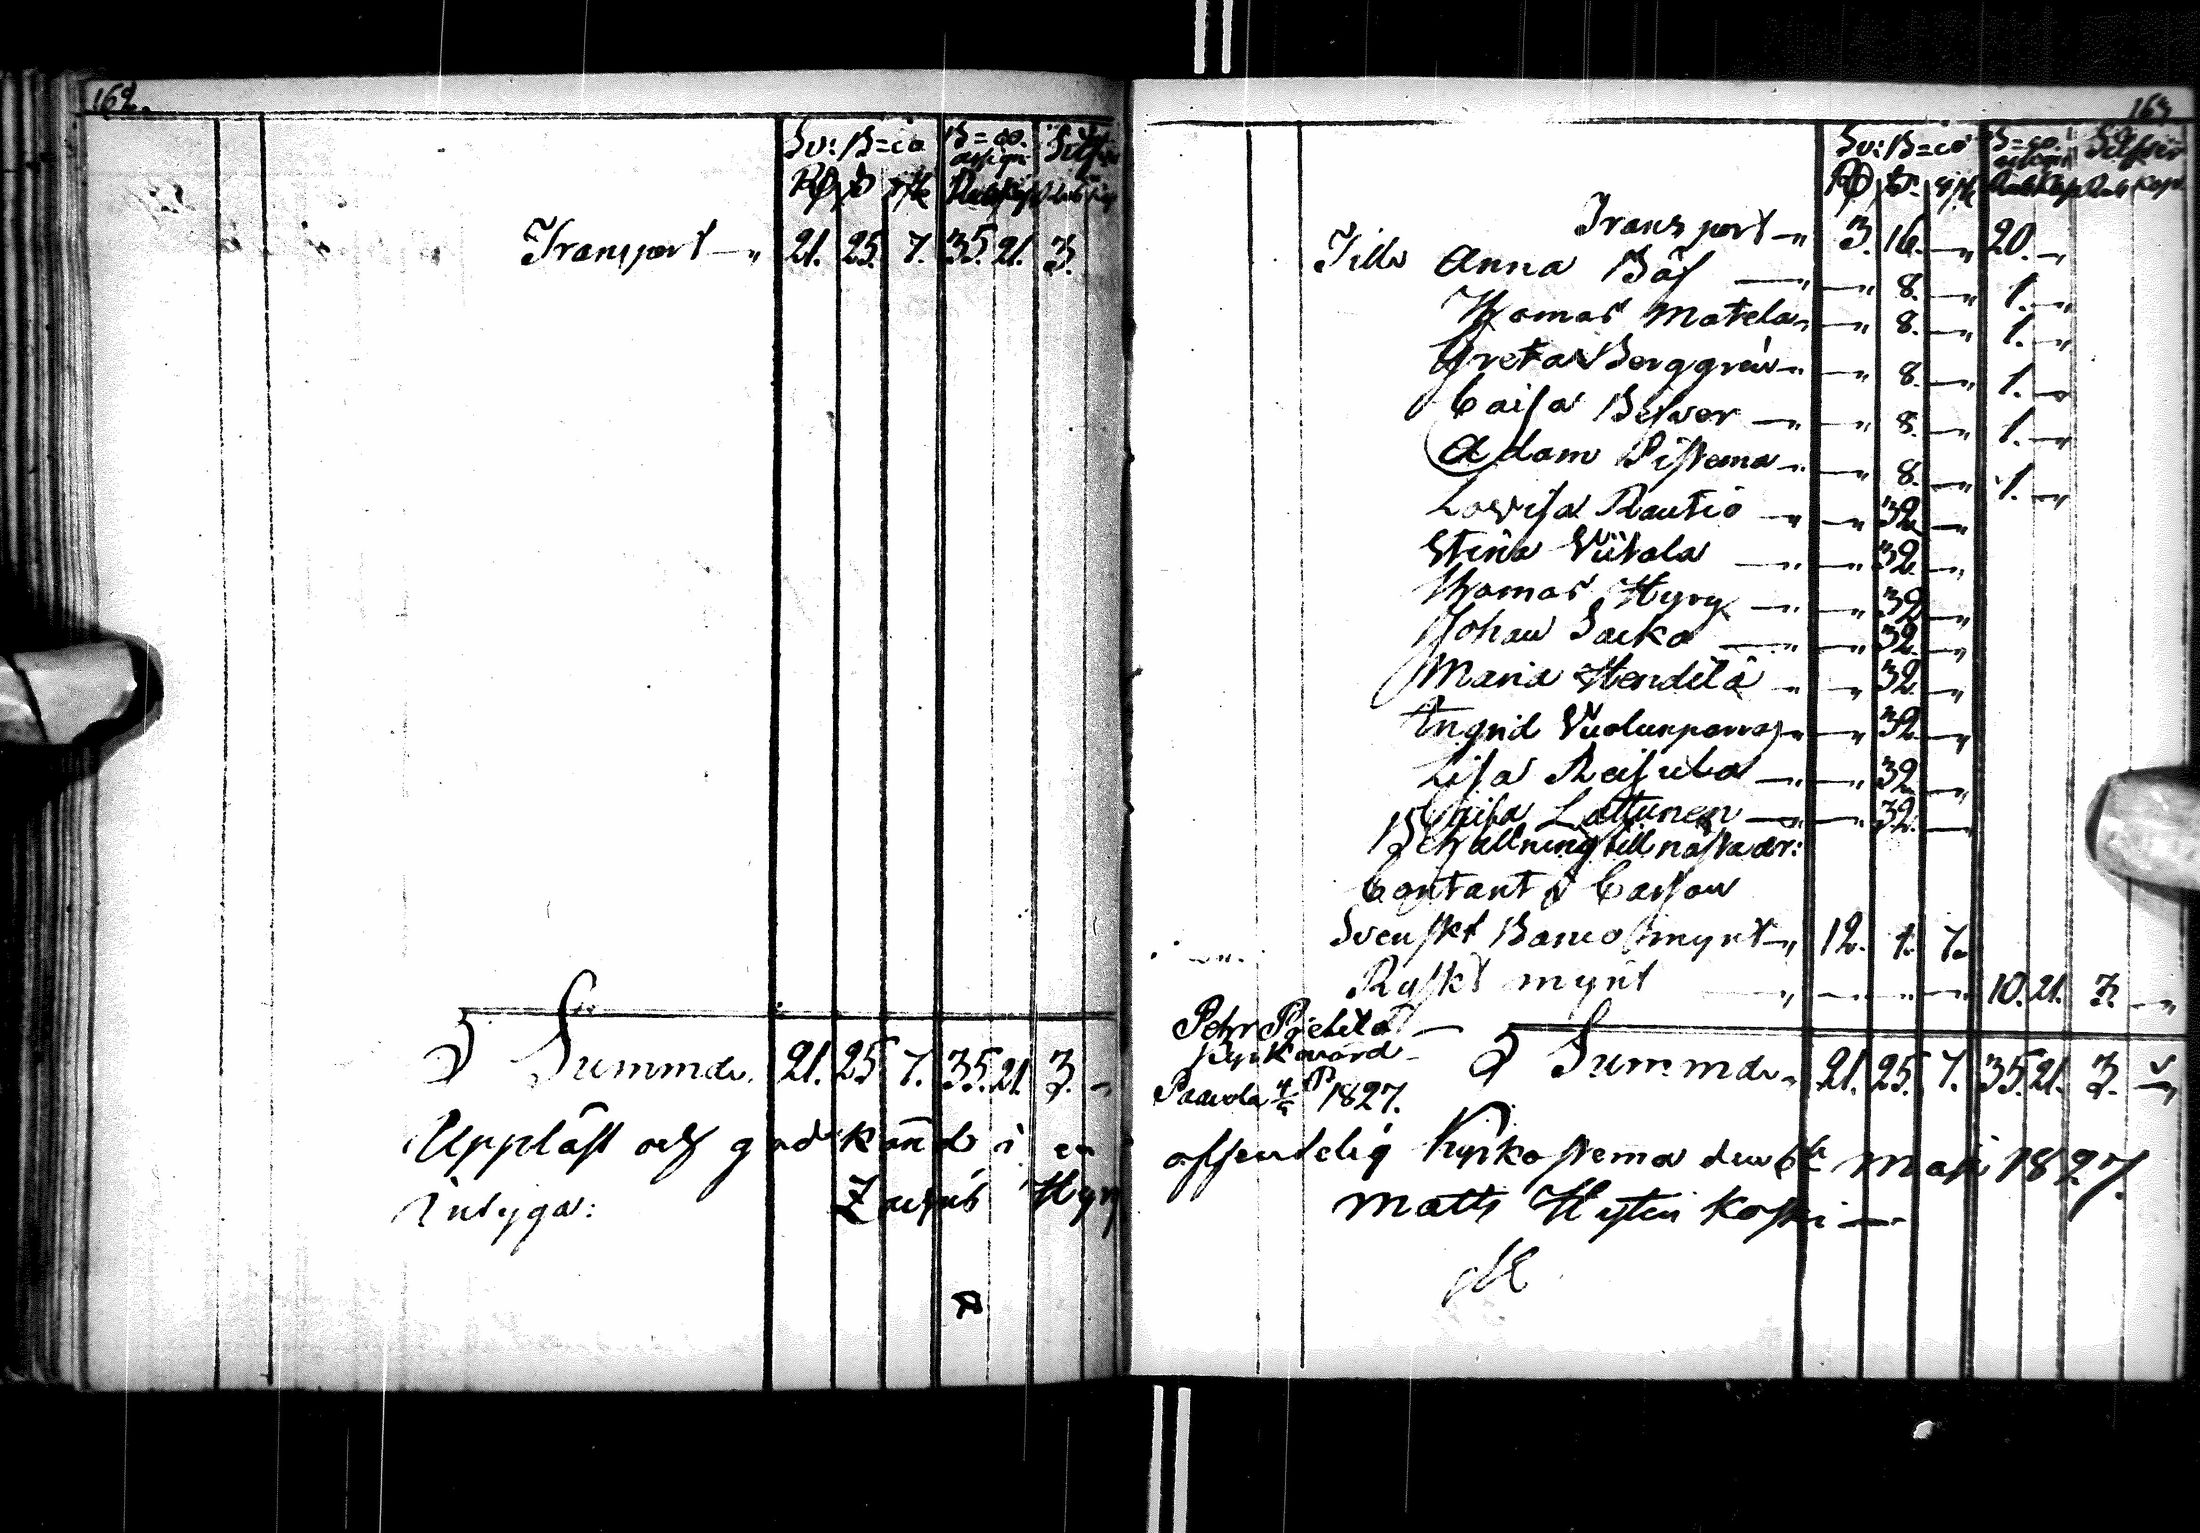 162.
Sv: B=co B=co. assign: Silfver
Rd s rst Rub Kop Rub Kop
Transport — „ 21. 25. 7. 35. 21. 3.
Summa. 21. 25 7. 35. 21. 3. –
Uppläst och godkänd i en
intyga:
163
Sv: B=co B=co. assign: Silfver
Rd s. rst Rub Kop Rub Kop.
Transport — „ 3. 16. — „ 20. — „
Till Anna Bäf — „ — „ 8. — „ 1. — „
Thomas Matela „ — „ 8. — „ 1. — „
Greta Berggren — „ — „ 8. — „ 1. — „
Caisa — „ — „ 8. — „ 1. — „
Adam — „ — „ 8. — „ 1. — „
Lovisa Rautio — „ — „ 32. — „
Stina Viitala — „ — „ 32. — „
Thomas Hyry — „ — „ 32. — „
Johan — „ — „ 32. — „
Maria Hendilä — „ — „ 32. — „
Ingrid — „ — „ 32. — „
Lisa — „ — „ 32. — „
Caisa Lattunen — „ — „ 32. — „
Behållning till nästa år:
Contant i Cassan
Svenskt Banco mynt — „ 12. 1. 7.
Ryskt mynt — „ — „ — 10. 21. 3. — „
Pehr Pietilä —
Kyrkovärd
Summa „ 21. 25. 7. 35. 21. 3. — „
Paavola 1827.
offentelig Kyrkostema den 6te Maji 1827.
Matts